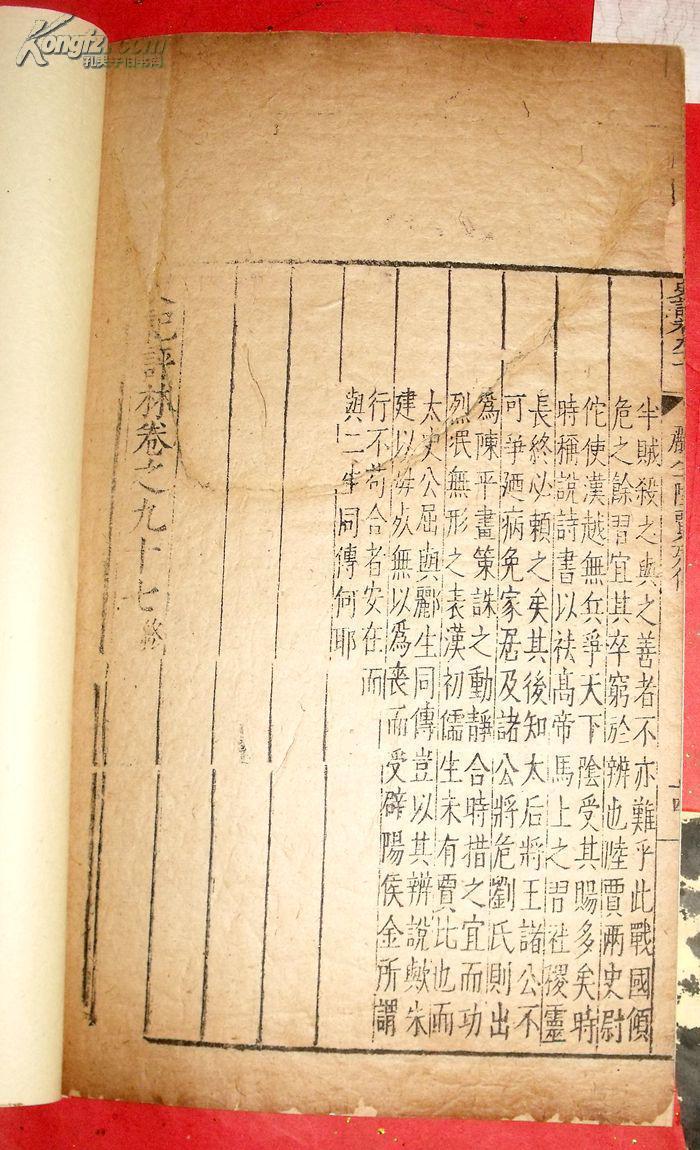 Kongfz.com
孔夫子旧书网
史記卷九十七
酈生陸賈列傳
十四
半賊殺之與之善者不亦難乎此戰國傾
危之餘習宜其卒窮於辨也陸賈兩史尉
佗使漢越無兵爭天下陰受其賜多矣時
時稱說詩書以祛髙帝馬上之習社稷靈
長終必賴之矣其後知太后將王諸公不
可爭廼病免家居及諸公將危劉氏則出
爲陳平畫策誅之動靜合時措之宜而功
烈泯無形之表漢初儒生未有賈比也而
太史公屈與酈生同傳豈以其辨說歟朱
建以母死無以爲喪而受辟陽侯金所謂
行不苟合者安在而
與二生同傳何耶
史記評林卷之九十七終